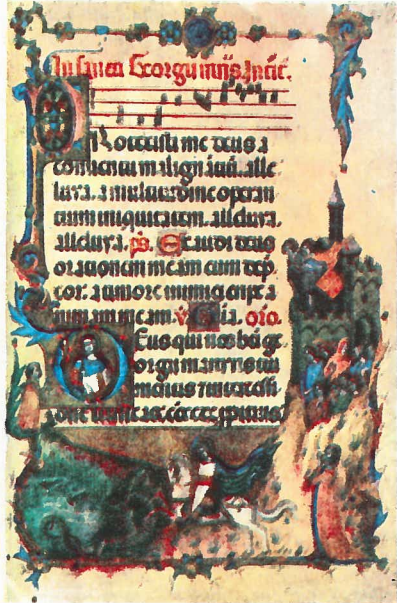 In sancti Georgii mris Intit.
Protexisti me deus a
conventu malignātiū. alle
luya. a multitudine operan
tium iniquitatem. alleluya.
alleluya. ps. Exaudi deus
orationem meam cum dep̄
cor. a timore inimici eripe a
nimam meam. v̄ Gl̄ia. oro.
Deus qui nos bāi ge
orgii martiris tui
meritis ⁊ intercessi